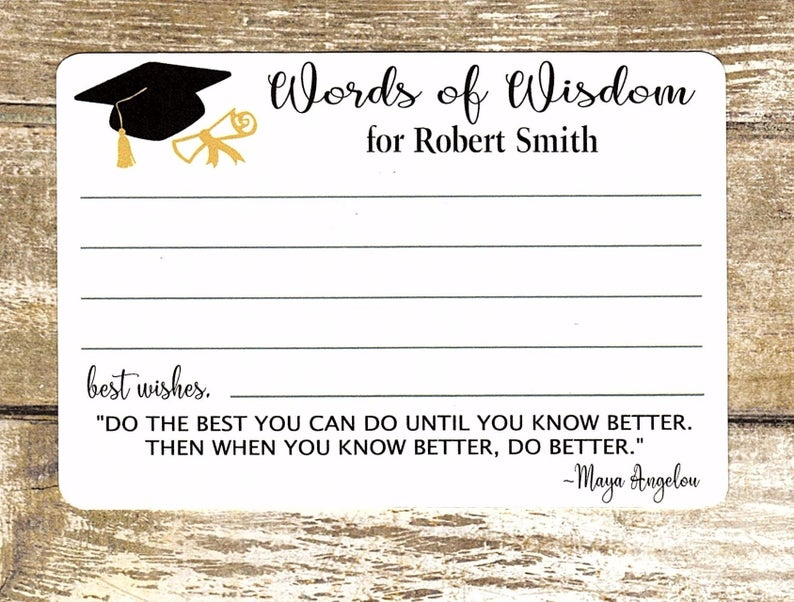 Words of Wisdom
for Robert Smith
best wishes,
"DO THE BEST YOU CAN DO UNTIL YOU KNOW BETTER.
THEN WHEN YOU KNOW BETTER, DO BETTER."
~Maya Angelou